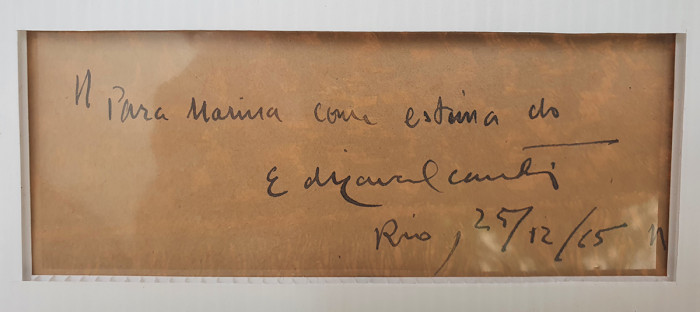 " Para Marina com a estima do
E di Cavalcanti
Rio, 25/12/65 "